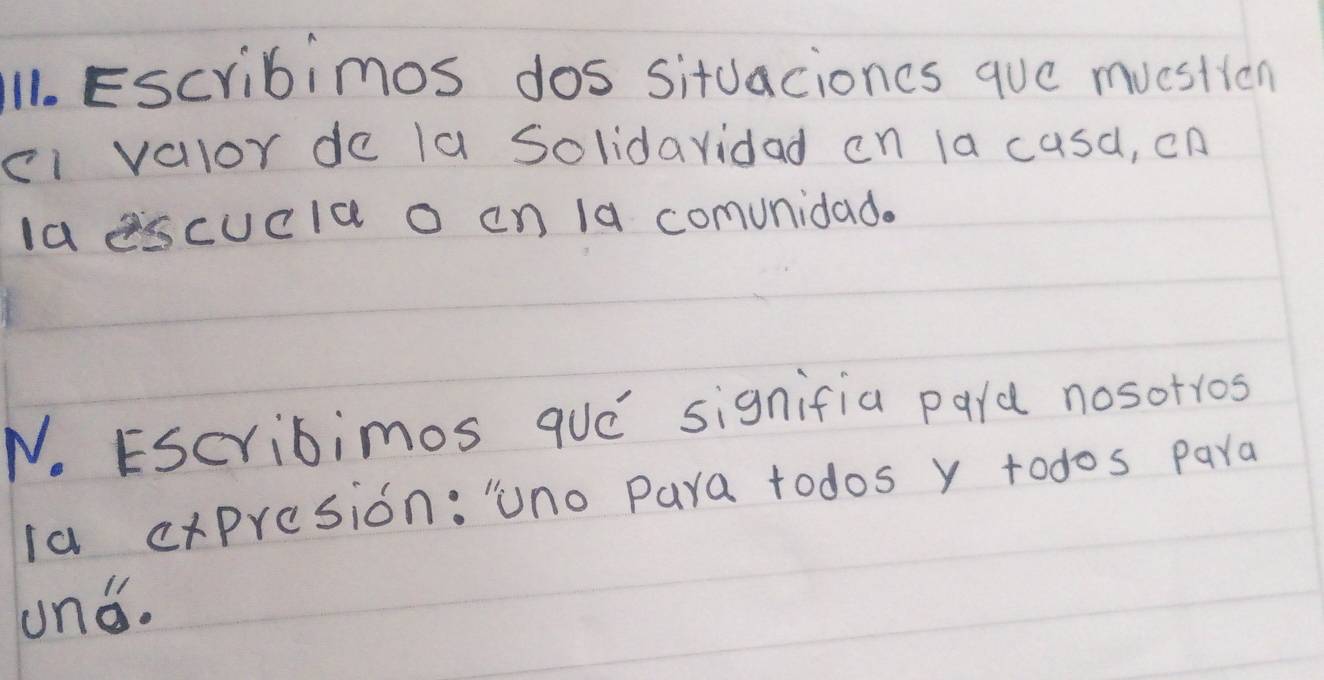 III. Escribimos dos situaciones que muestren
el valor de la Solidaridad en la casa, en
la escuela o en la comunidad.
IV. Escribimos qué signifia para nosotros
la expresión: "uno para todos y todos para
uno".